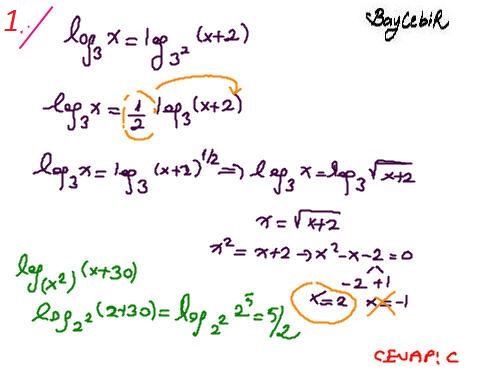 1./ BayCebiR
log₃ x = log₃² (x+2)
log₃ x = 1/2 log₃ (x+2)
log₃ x = log₃ (x+2)^1/2 ⇒ log₃ x = log₃ √x+2
x = √x+2
x² = x+2 → x² - x - 2 = 0
-2 +1
x=2 x=-1
log(x²) (x+30)
log₂² (2+30) = log₂² 2⁵ = 5/2
CEVAP: C